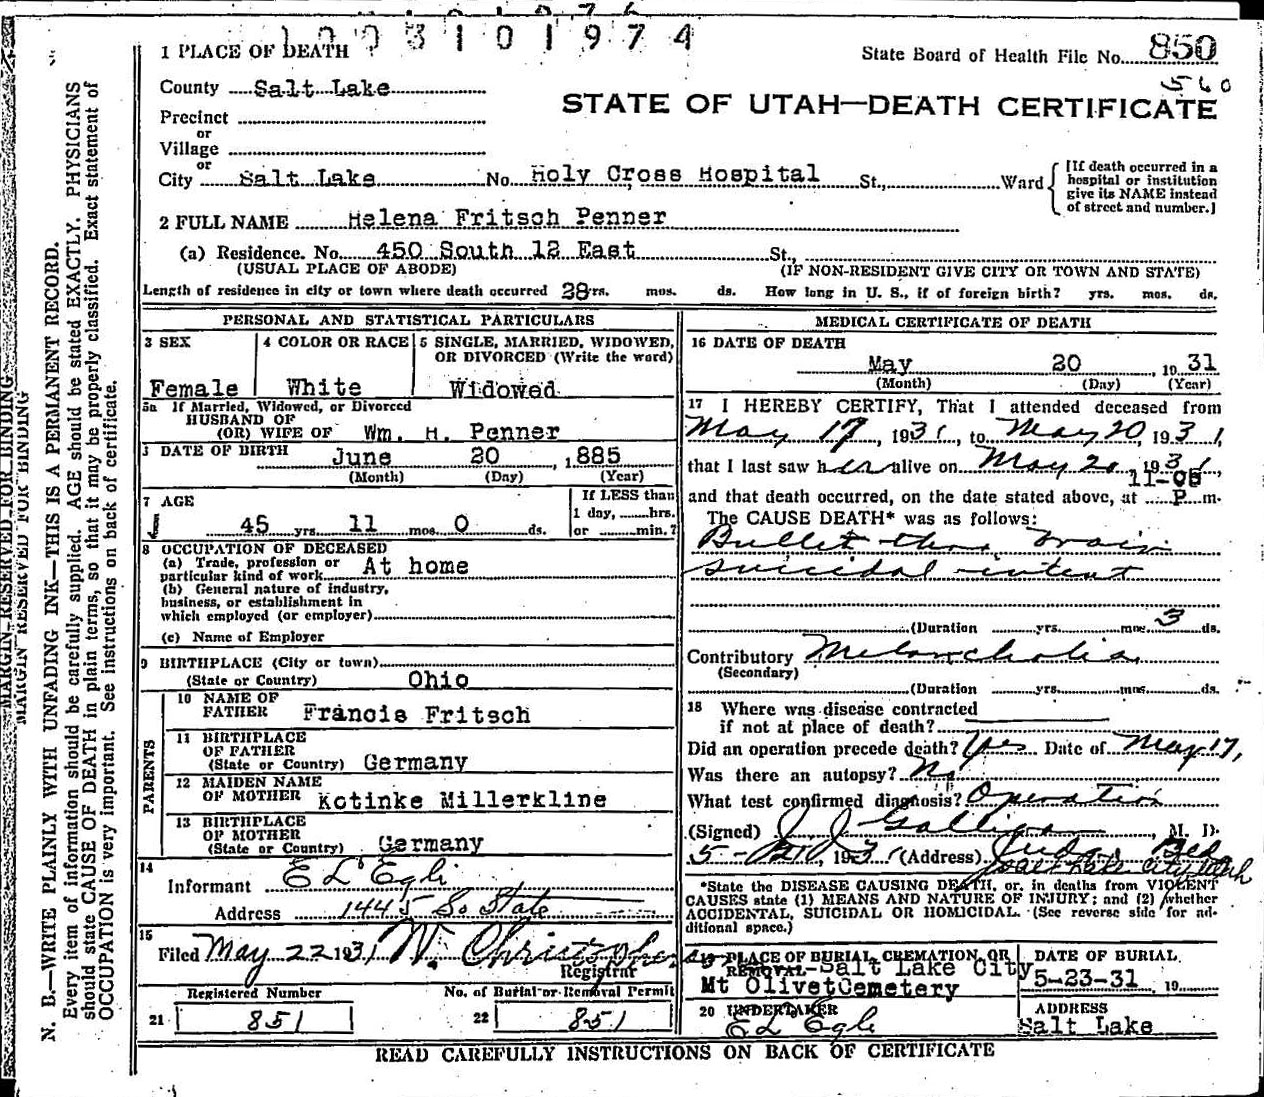 1003101974
1 PLACE OF DEATH
State Board of Health File No. 850
560
County Salt Lake
STATE OF UTAH—DEATH CERTIFICATE
Precinct
or
Village
or
City Salt Lake No. Holy Cross Hospital St., Ward
[If death occurred in a
hospital or institution
give its NAME instead
of street and number.]
2 FULL NAME Helena Fritsch Penner
(a) Residence. No. 450 South 12 East St.,
(USUAL PLACE OF ABODE) (IF NON-RESIDENT GIVE CITY OR TOWN AND STATE)
Length of residence in city or town where death occurred 28 yrs. mos. ds. How long in U. S., if of foreign birth? yrs. mos. ds.
PERSONAL AND STATISTICAL PARTICULARS
3 SEX
Female
4 COLOR OR RACE
White
5 SINGLE, MARRIED, WIDOWED,
OR DIVORCED (Write the word)
Widowed
5a If Married, Widowed, or Divorced
HUSBAND OF
(OR) WIFE OF Wm. H. Penner
DATE OF BIRTH June 20, 1885
(Month) (Day) (Year)
7 AGE
45 yrs. 11 mos. 0 ds.
If LESS than
1 day, hrs.
or min.?
8 OCCUPATION OF DECEASED
(a) Trade, profession or
particular kind of work At home
(b) General nature of industry,
business, or establishment in
which employed (or employer)
(c) Name of Employer
9 BIRTHPLACE (City or town)
(State or Country) Ohio
PARENTS
10 NAME OF
FATHER Francis Fritsch
11 BIRTHPLACE
OF FATHER
(State or Country) Germany
12 MAIDEN NAME
OF MOTHER Kotinke Millerkline
13 BIRTHPLACE
OF MOTHER
(State or Country) Germany
14
Informant E L Egli
Address 1445 So State
15
Filed May 22 1931 W. Christophe
Registrar
Registered Number No. of Burial or Removal Permit
21 851 22 851
MEDICAL CERTIFICATE OF DEATH
16 DATE OF DEATH
May 20, 1931
(Month) (Day) (Year)
17 I HEREBY CERTIFY, That I attended deceased from
May 17, 1931, to May 20, 1931,
that I last saw her alive on May 20, 1931,
11-05
and that death occurred, on the date stated above, at P m.
The CAUSE DEATH* was as follows:
Bullet thro brain
suicidal intent
(Duration yrs. mos. 3 ds.
Contributory Melancholia
(Secondary)
(Duration yrs. mos. ds.
18 Where was disease contracted
if not at place of death?
Did an operation precede death? Yes Date of May 17,
Was there an autopsy? No
What test confirmed diagnosis? Operation
(Signed) J J Galligan, M. D.
5-21, 1931 (Address) Judge Bldg
Salt Lake City Utah
*State the DISEASE CAUSING DEATH, or, in deaths from VIOLENT
CAUSES state (1) MEANS AND NATURE OF INJURY; and (2) whether
ACCIDENTAL, SUICIDAL OR HOMICIDAL. (See reverse side for ad-
ditional space.)
19 PLACE OF BURIAL, CREMATION, OR
REMOVAL—Salt Lake City
Mt Olivet Cemetery
DATE OF BURIAL
5-23-31, 19
20 UNDERTAKER
E L Egli
ADDRESS
Salt Lake
READ CAREFULLY INSTRUCTIONS ON BACK OF CERTIFICATE
MARGIN RESERVED FOR BINDING
MARGIN RESERVED FOR BINDING
N. B.—WRITE PLAINLY WITH UNFADING INK—THIS IS A PERMANENT RECORD.
Every item of information should be carefully supplied. AGE should be stated EXACTLY. PHYSICIANS
should state CAUSE OF DEATH in plain terms, so that it may be properly classified. Exact statement of
OCCUPATION is very important. See instructions on back of certificate.